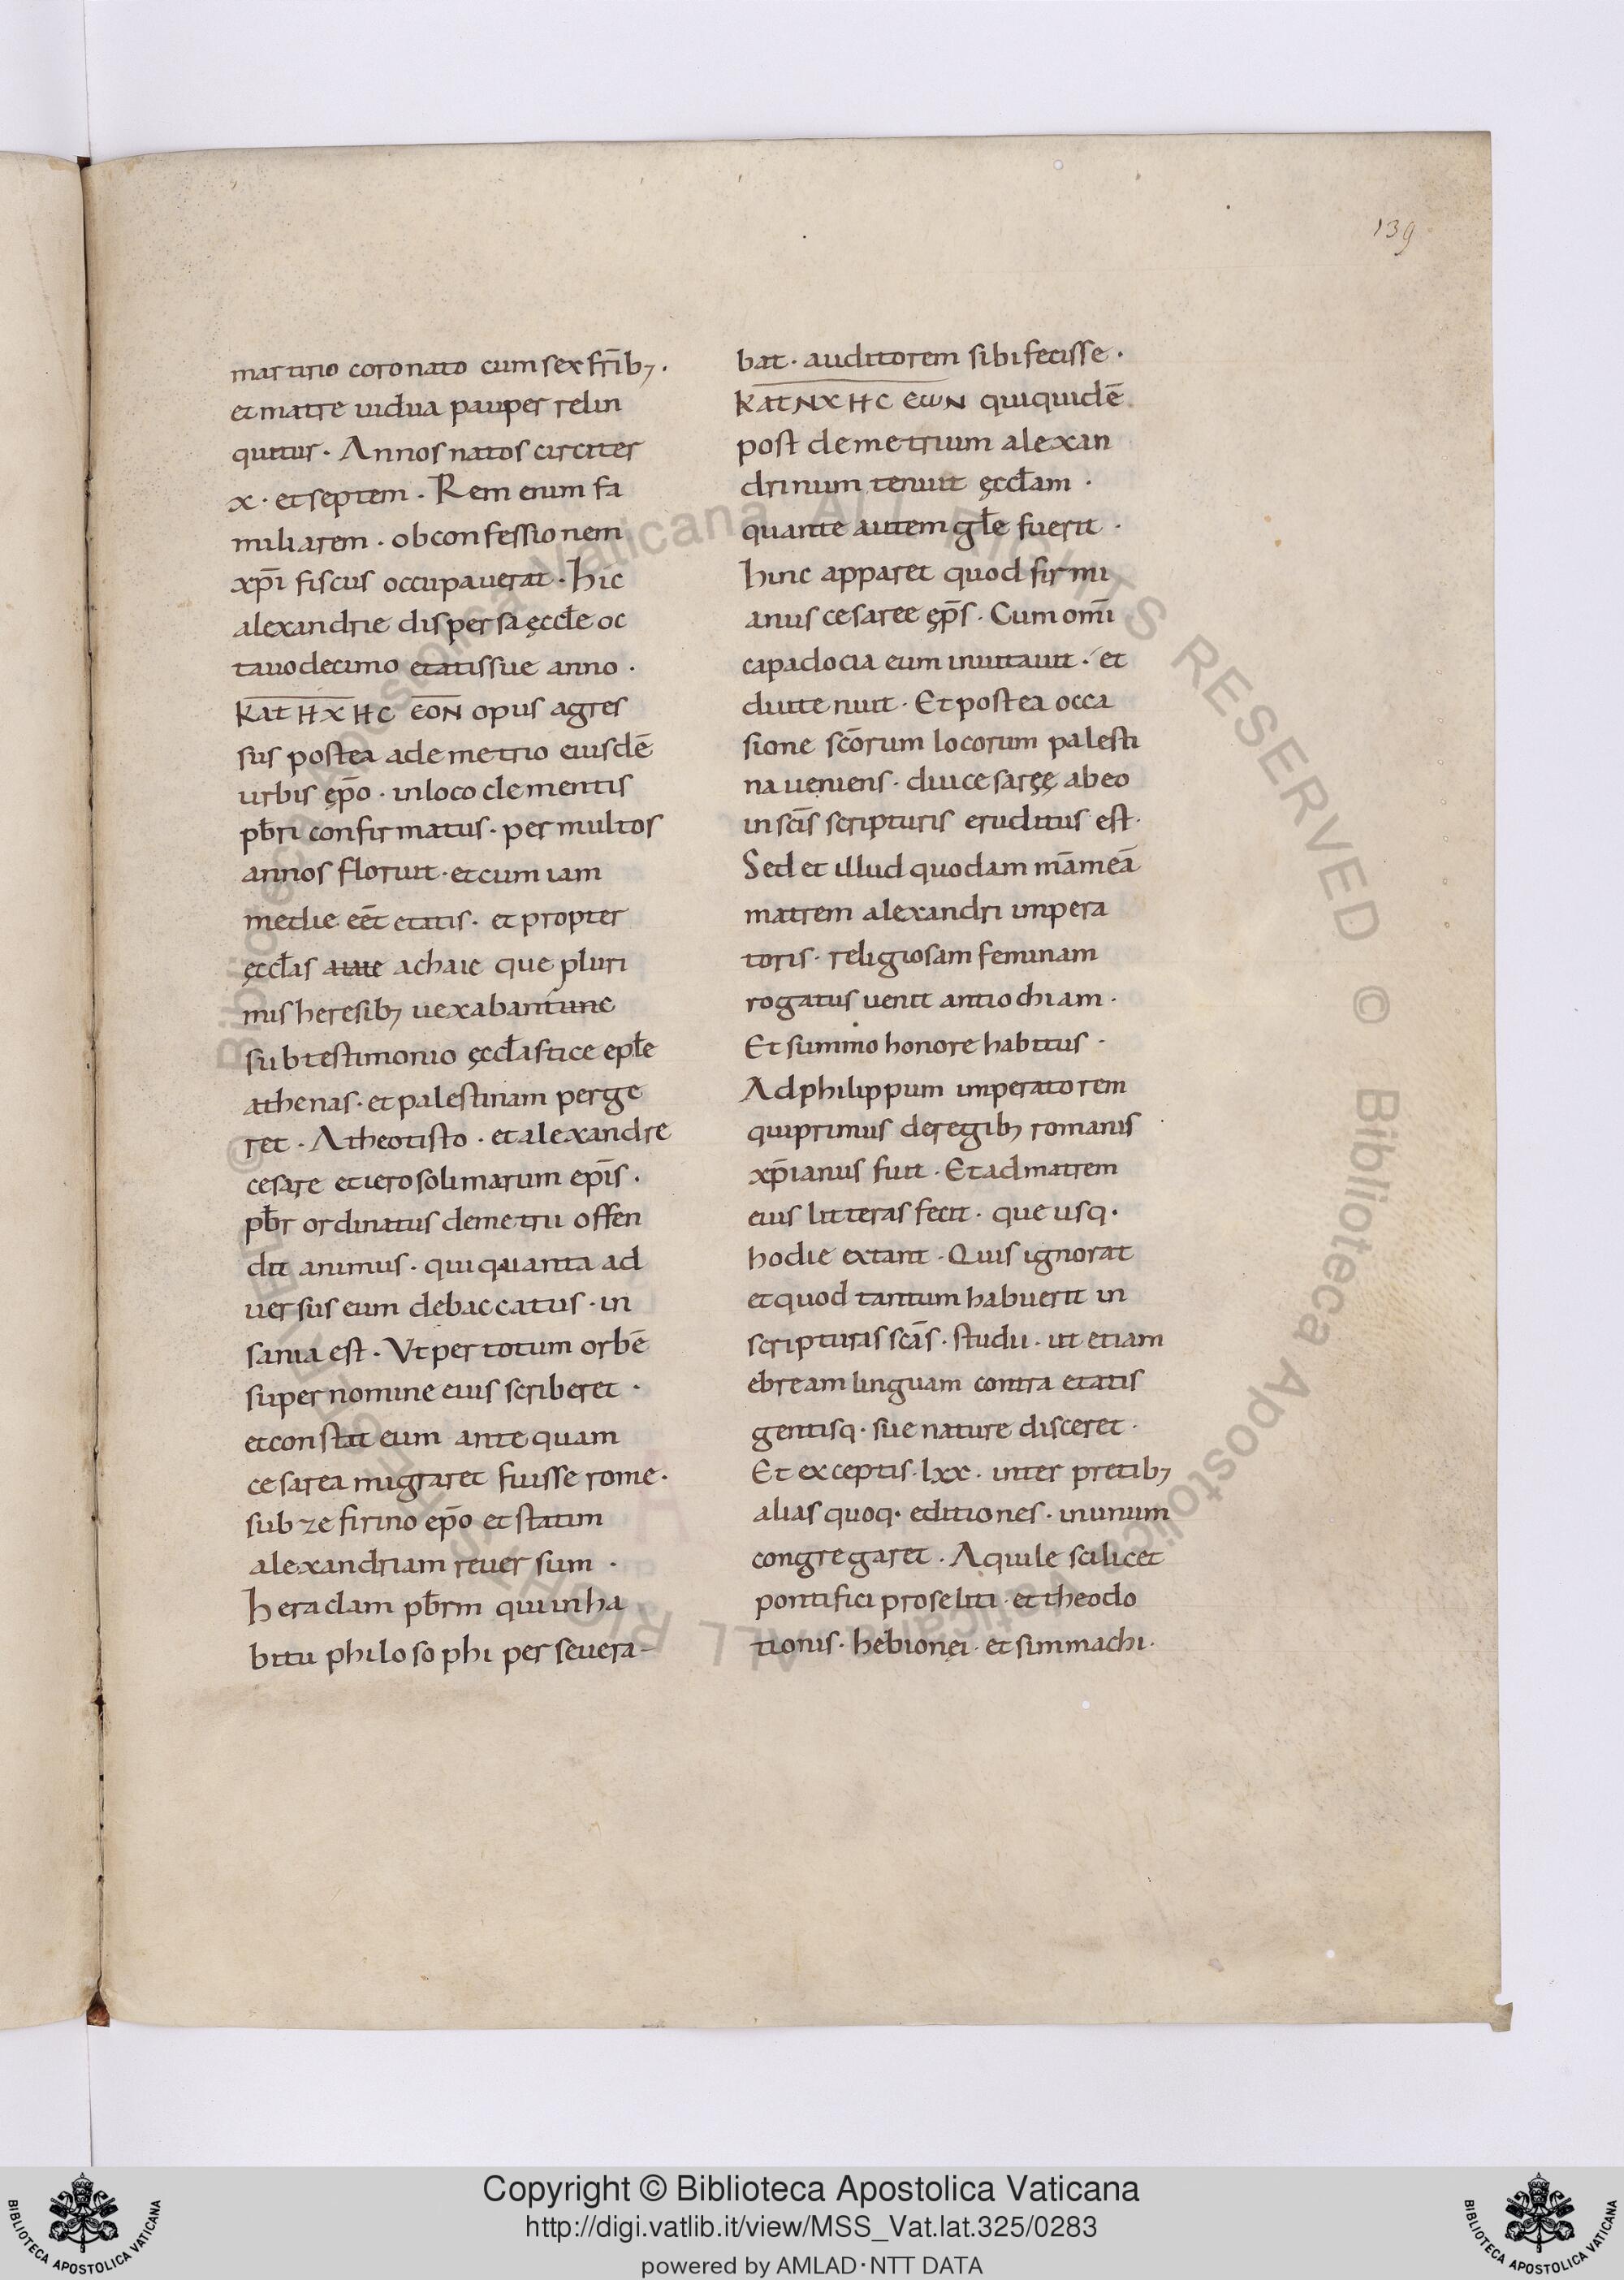 139
martirio coronato cum sex fr̄ib;.
et matre uidua pauper relin
quitur · Annos natos circiter
x · et septem · Rem enim fa
miliarem · ob confessionem
xp̄i fiscus occupauerat · hic
alexandrie dispersa ęccłe oc
tauodecimo etatis sue anno ·
KatHXHC EON opus agres
sus postea ademetrio eiusdē
urbis ęp̄o · inloco clementis
pb̄ri confirmatus · per multos
annos floruit · et cum iam
medie eēt etatis · et propter
ęccłas achaie que pluri
mis heresib; uexabantunc
sub testimonio ęccłastice epłe
athenas · et palestinam perge
ret · A theotisto · et alexandre
cesare et ierosolimarum ep̄is ·
pb̄r ordinatus demetrii offen
dit animus · qui quanta ad
uersus eum debaccatus · in
sania est · Vt per totum orbē
super nomine eius scriberet ·
et constat eum ante quam
cesarea migraret fuisse rome ·
sub zefirino ep̄o et statim
alexandriam reuersum ·
heraclam pb̄rm qui in ha
bitu philosophi perseuera-
bat · auditorem sibi fecisse ·
KatNXHC EωN qui quidē
post demetrium alexan
drinum tenuit ęccłam ·
quante autem głe fuerit ·
hinc apparet quod firmi
anus cesaree ęp̄s · Cum om̄i
capadocia eum inuitauit · et
diutenuit · Et postea occa
sione sc̄orum locorum palesti
na ueniens · diu cesaręę ab eo
in sc̄is scripturis eruditus est ·
Sed et illud quodam mām̄eā
matrem alexandri impera
toris · religiosam feminam
rogatus uenit antiochiam ·
Et summo honore habitus ·
Ad philippum imperatorem
qui primus de regib; romanis
xp̄ianus fuit · Et ad matrem
eius litteras fecit · que usq·
hodie extant · Quis ignorat
et quod tantum habuerit in
scripturas sc̄as · studii · ut etiam
ebream linguam contra etatis
gentisq· sue nature disceret ·
Et exceptis · lxx · interpretib;
alias quoq· editiones · in unum
congregaret · Aquile scilicet
pontifici proseliti · et theodo
tionis · hebionęi · et simmachi ·
Copyright © Biblioteca Apostolica Vaticana
http://digi.vatlib.it/view/MSS_Vat.lat.325/0283
powered by AMLAD·NTT DATA
BIBLIOTECA APOSTOLICA VATICANA
BIBLIOTECA APOSTOLICA VATICANA